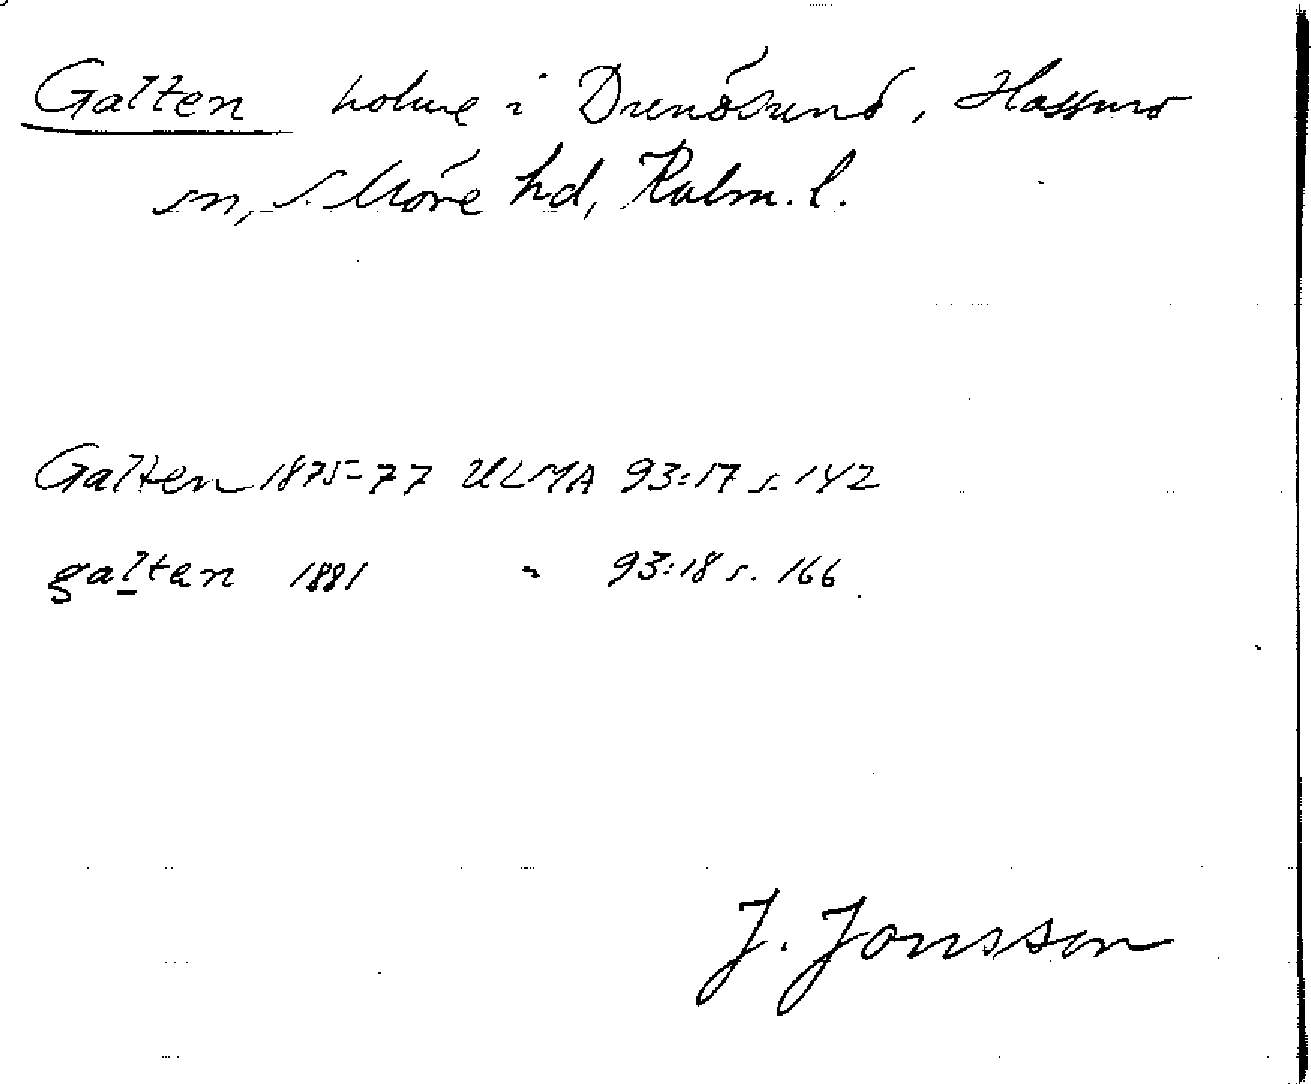 Galten holme i Drenösund, Hassmo
sn, S. Möre hd, Kalm. l.
Galten 1875-77 ULMA 93:17 s. 142
galtan 1881 " 93:18 s. 166
J. Jonsson